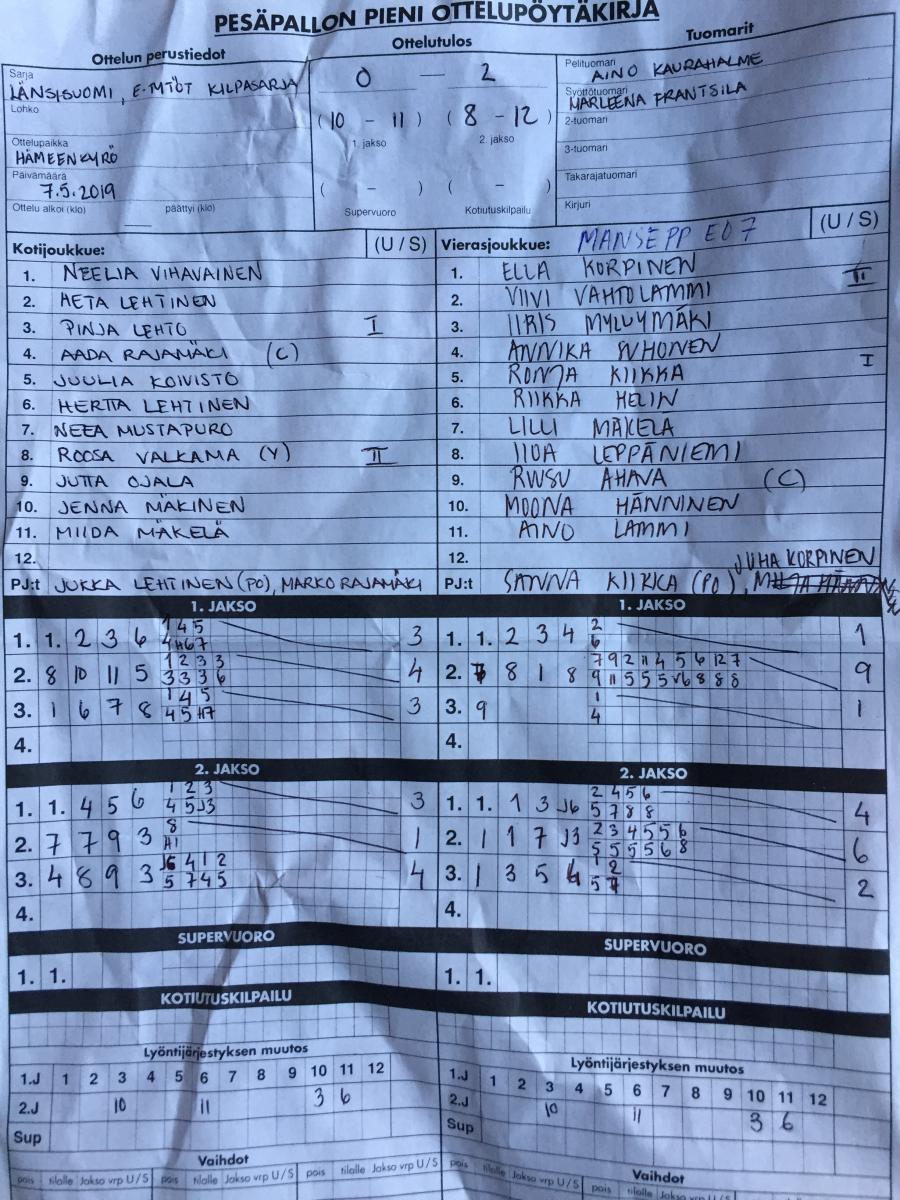 PESÄPALLON PIENI OTTELUPÖYTÄKIRJA
Ottelun perustiedot
Sarja
LÄNSISUOMI, E-TYTÖT KILPASARJA
Lohko
Ottelupaikka
HÄMEENKYRÖ
Päivämäärä
7.5.2019
Ottelu alkoi (klo) päättyi (klo)
Ottelutulos
0 – 2
(10 - 11) (8 - 12)
1. jakso 2. jakso
( - ) ( - )
Supervuoro Kotiutuskilpailu
Tuomarit
Pelituomari
AINO KAURAHALME
Syöttötuomari
MARLEENA FRANTSILA
2-tuomari
3-tuomari
Takarajatuomari
Kirjuri
Kotijoukkue: (U / S)
1. NEELIA VIHAVAINEN
2. HETA LEHTINEN
3. PINJA LEHTO I
4. AADA RAJAMÄKI (C)
5. JUULIA KOIVISTO
6. HERTTA LEHTINEN
7. NEEA MUSTAPURO
8. ROOSA VALKAMA (Y) II
9. JUTTA OJALA
10. JENNA MÄKINEN
11. MIIDA MÄKELÄ
12.
PJ:t JUKKA LEHTINEN (PO), MARKO RAJAMÄKI
Vierasjoukkue: MANSE PP E07 (U / S)
1. ELLA KORPINEN II
2. VIIVI VAHTOLAMMI
3. IIRIS MYLLYMÄKI
4. ANNIKA SUHONEN I
5. RONJA KIIKKA
6. RIIKKA HELIN
7. LILLI MÄKELÄ
8. IIDA LEPPÄNIEMI
9. RUUSU AHAVA (C)
10. MOONA HÄNNINEN
11. AINO LAMMI
12.
JUHA KORPINEN
PJ:t SANNA KIIKKA (PO),
1. JAKSO
1. 1. 2 3 6 1 4 5 3
4 H6 7
2. 8 10 11 5 1 2 3 3 4
3 3 3 6
3. 1 6 7 8 1 4 5 3
4 5 H7
4.
1. JAKSO
1. 1. 2 3 4 2 1
6
2. 8 1 8 7 9 2 11 4 5 6 12 7 9
9 11 5 5 5 8 8 8
3. 9 1 1
4
4.
2. JAKSO
1. 1. 4 5 6 1 2 3 3
4 5 J3
2. 7 7 9 3 8 1
H1
3. 4 8 9 3 4 1 2 4
5 7 4 5
4.
2. JAKSO
1. 1. 1 3 J6 2 4 5 6 4
5 7 8 8
2. 1 1 7 J3 2 3 4 5 5 6 6
5 5 5 5 6 8
3. 1 3 5 1 2 2
5 7
4.
SUPERVUORO
1. 1.
SUPERVUORO
1. 1.
KOTIUTUSKILPAILU
KOTIUTUSKILPAILU
Lyöntijärjestyksen muutos
1.J 1 2 3 4 5 6 7 8 9 10 11 12
2.J 10 11 3 6
Sup
Lyöntijärjestyksen muutos
1.J 1 2 3 4 5 6 7 8 9 10 11 12
2.J 10 11 3 6
Sup
Vaihdot
pois tilalle Jakso vrp U/S pois tilalle Jakso vrp U/S
Vaihdot
pois tilalle Jakso vrp U/S pois tilalle Jakso vrp U/S